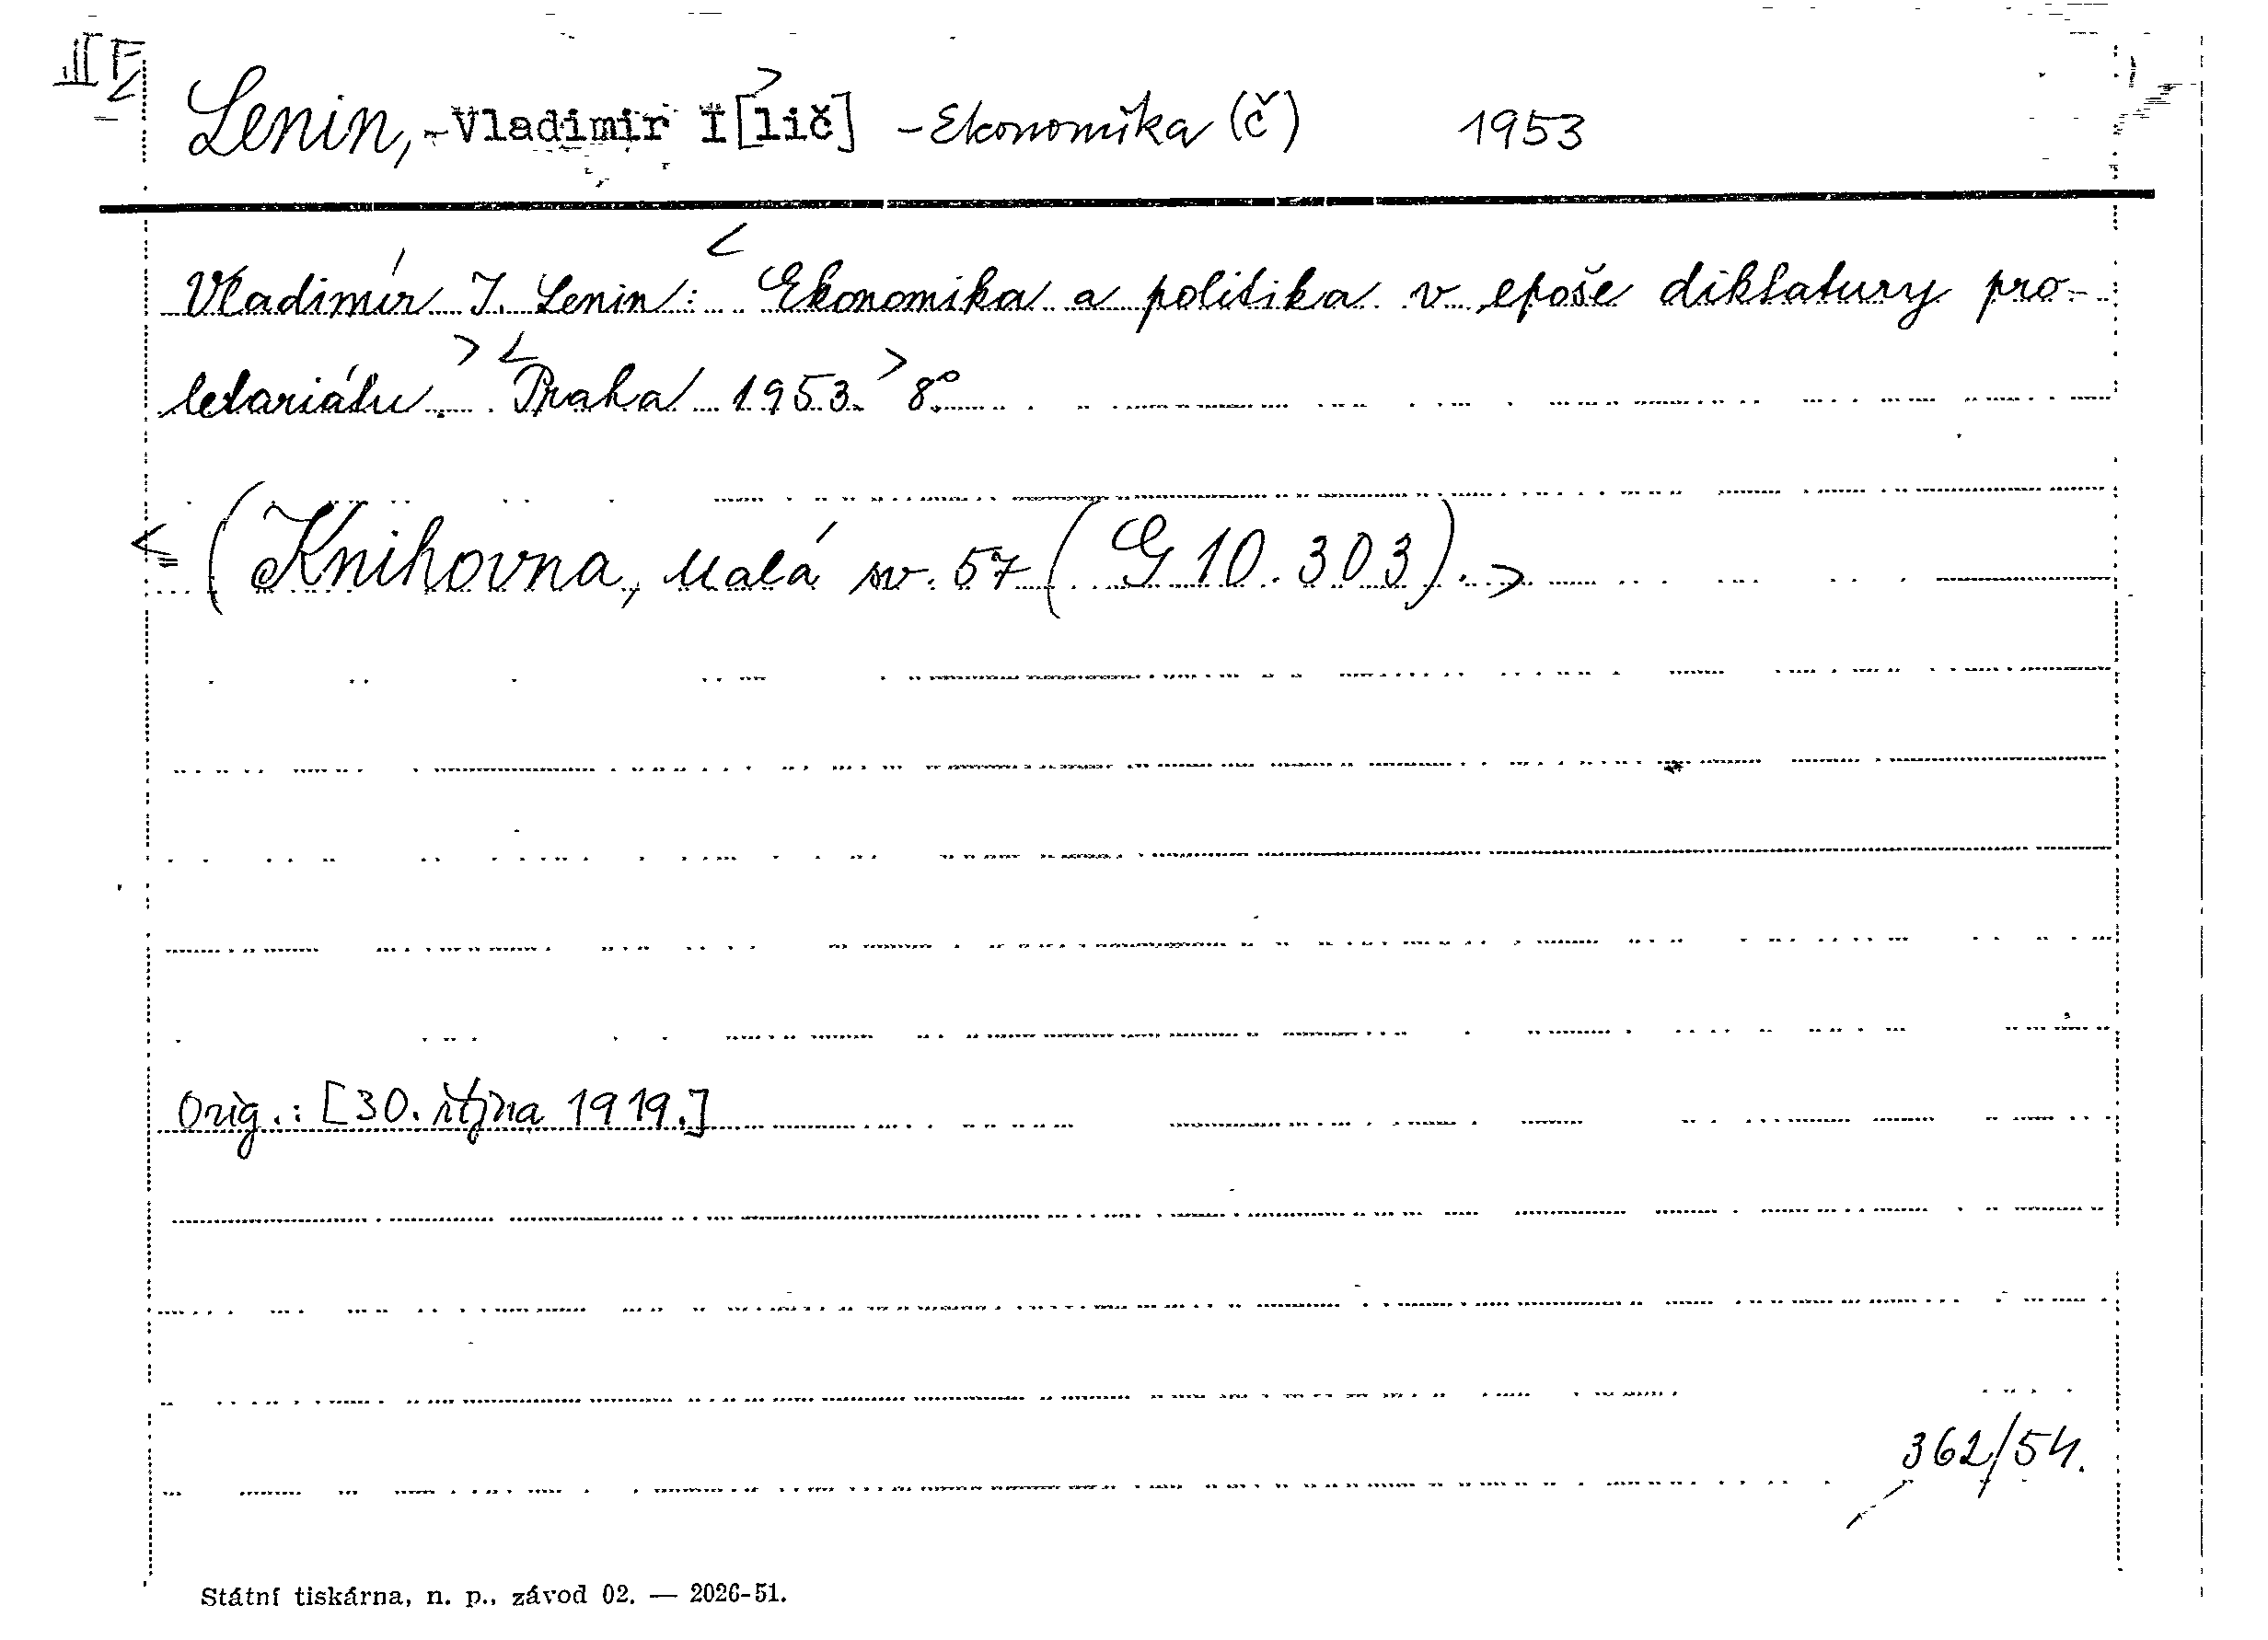 Lenin, -Vladimir I[lič] - Ekonomika (č) 1953
Vladimír I. Lenin: Ekonomika a politika v epoše diktatury pro-
letariátu. Praha 1953. 8°
(Knihovna, Malá sv. 57 (G 10.303).
Orig.: [30. října 1919.]
362/54.
Státní tiskárna, n. p., závod 02. — 2026-51.